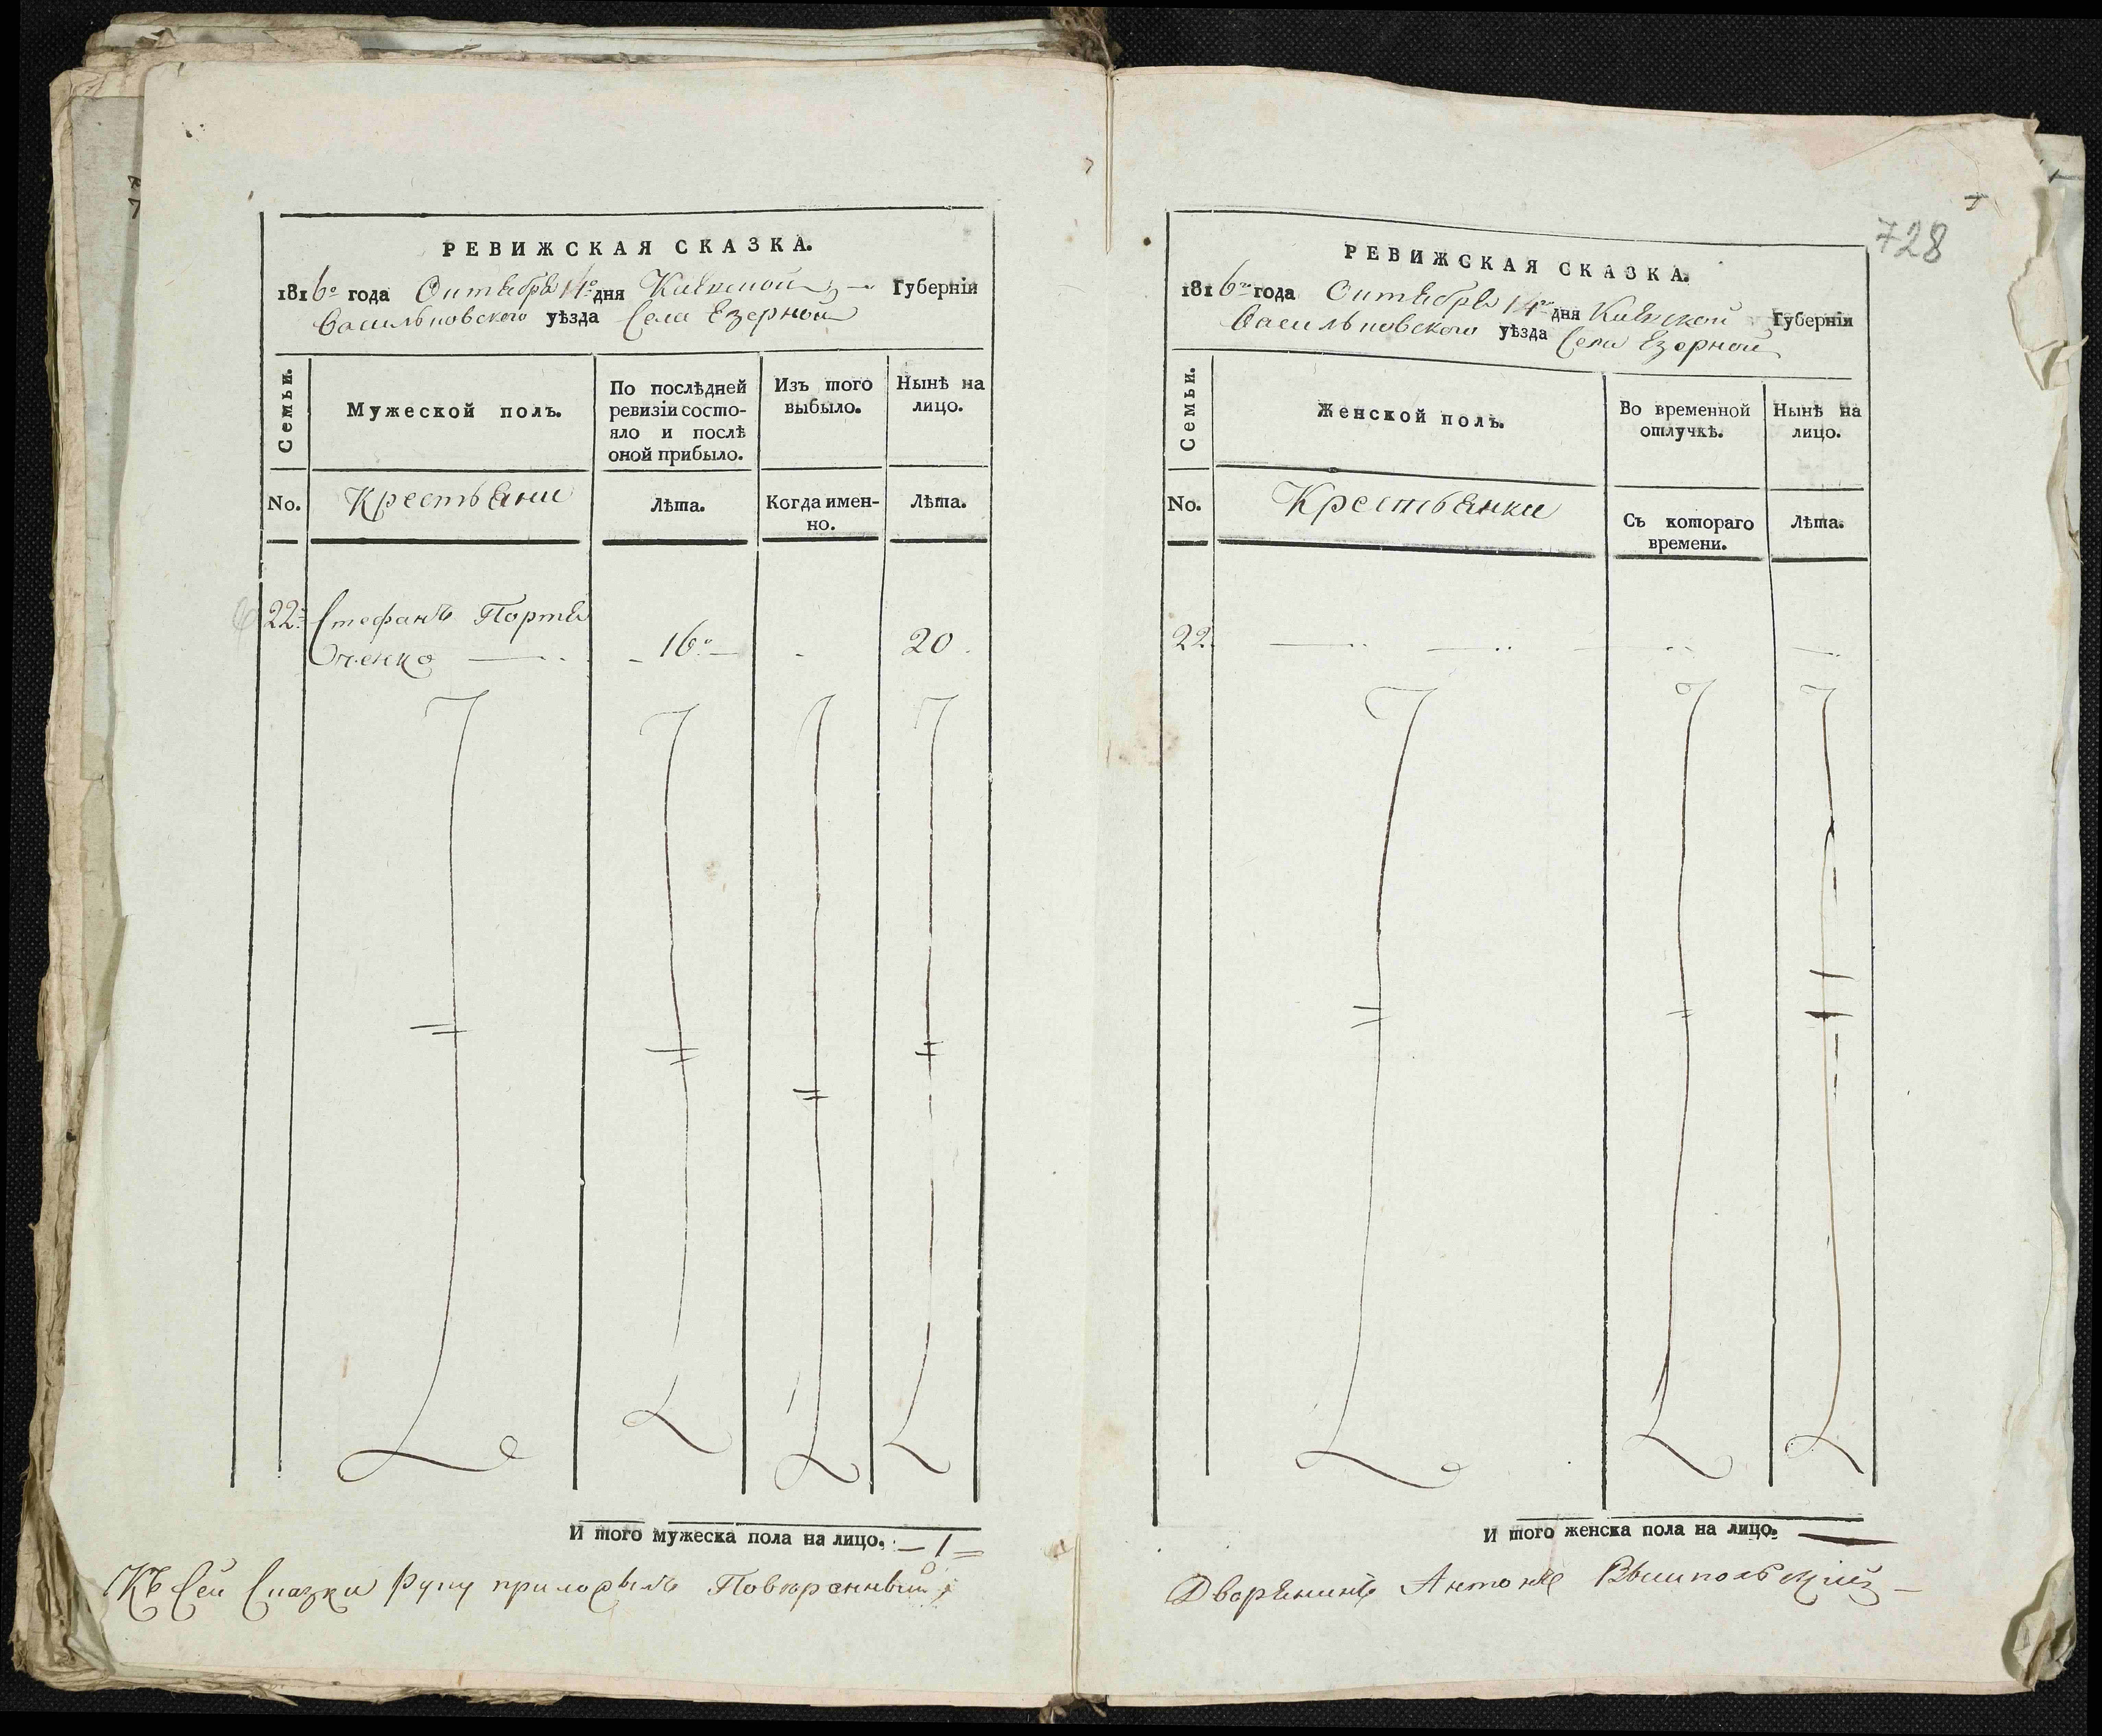 РЕВИЖСКАЯ СКАЗКА.
1816го года Октября 14го дня Киевской Губерніи
Васильковского уѣзда Села Езерной
Семьи.
Мужеской полъ.
По послѣдней
ревизіи состо-
яло и послѣ
оной прибыло.
Изъ того
выбыло.
Нынѣ на
лицо.
No.
Крестьяни
Лѣта.
Когда имен-
но.
Лѣта.
22
Стефанъ Портя
16
20
И того мужеска пола на лицо. 1
Къ сей сказки руку приложылъ Повюренный
728
РЕВИЖСКАЯ СКАЗКА.
1816го года Октября 14го дня Киевской Губерніи
Васильковского уѣзда Села Езерной
Семьи.
Женской полъ.
Во временной
отлучкѣ.
Нынѣ на
лицо.
No.
Крестьянки
Съ котораго
времени.
Лѣта.
22
И того женска пола на лицо.
Дворянинъ Антоній